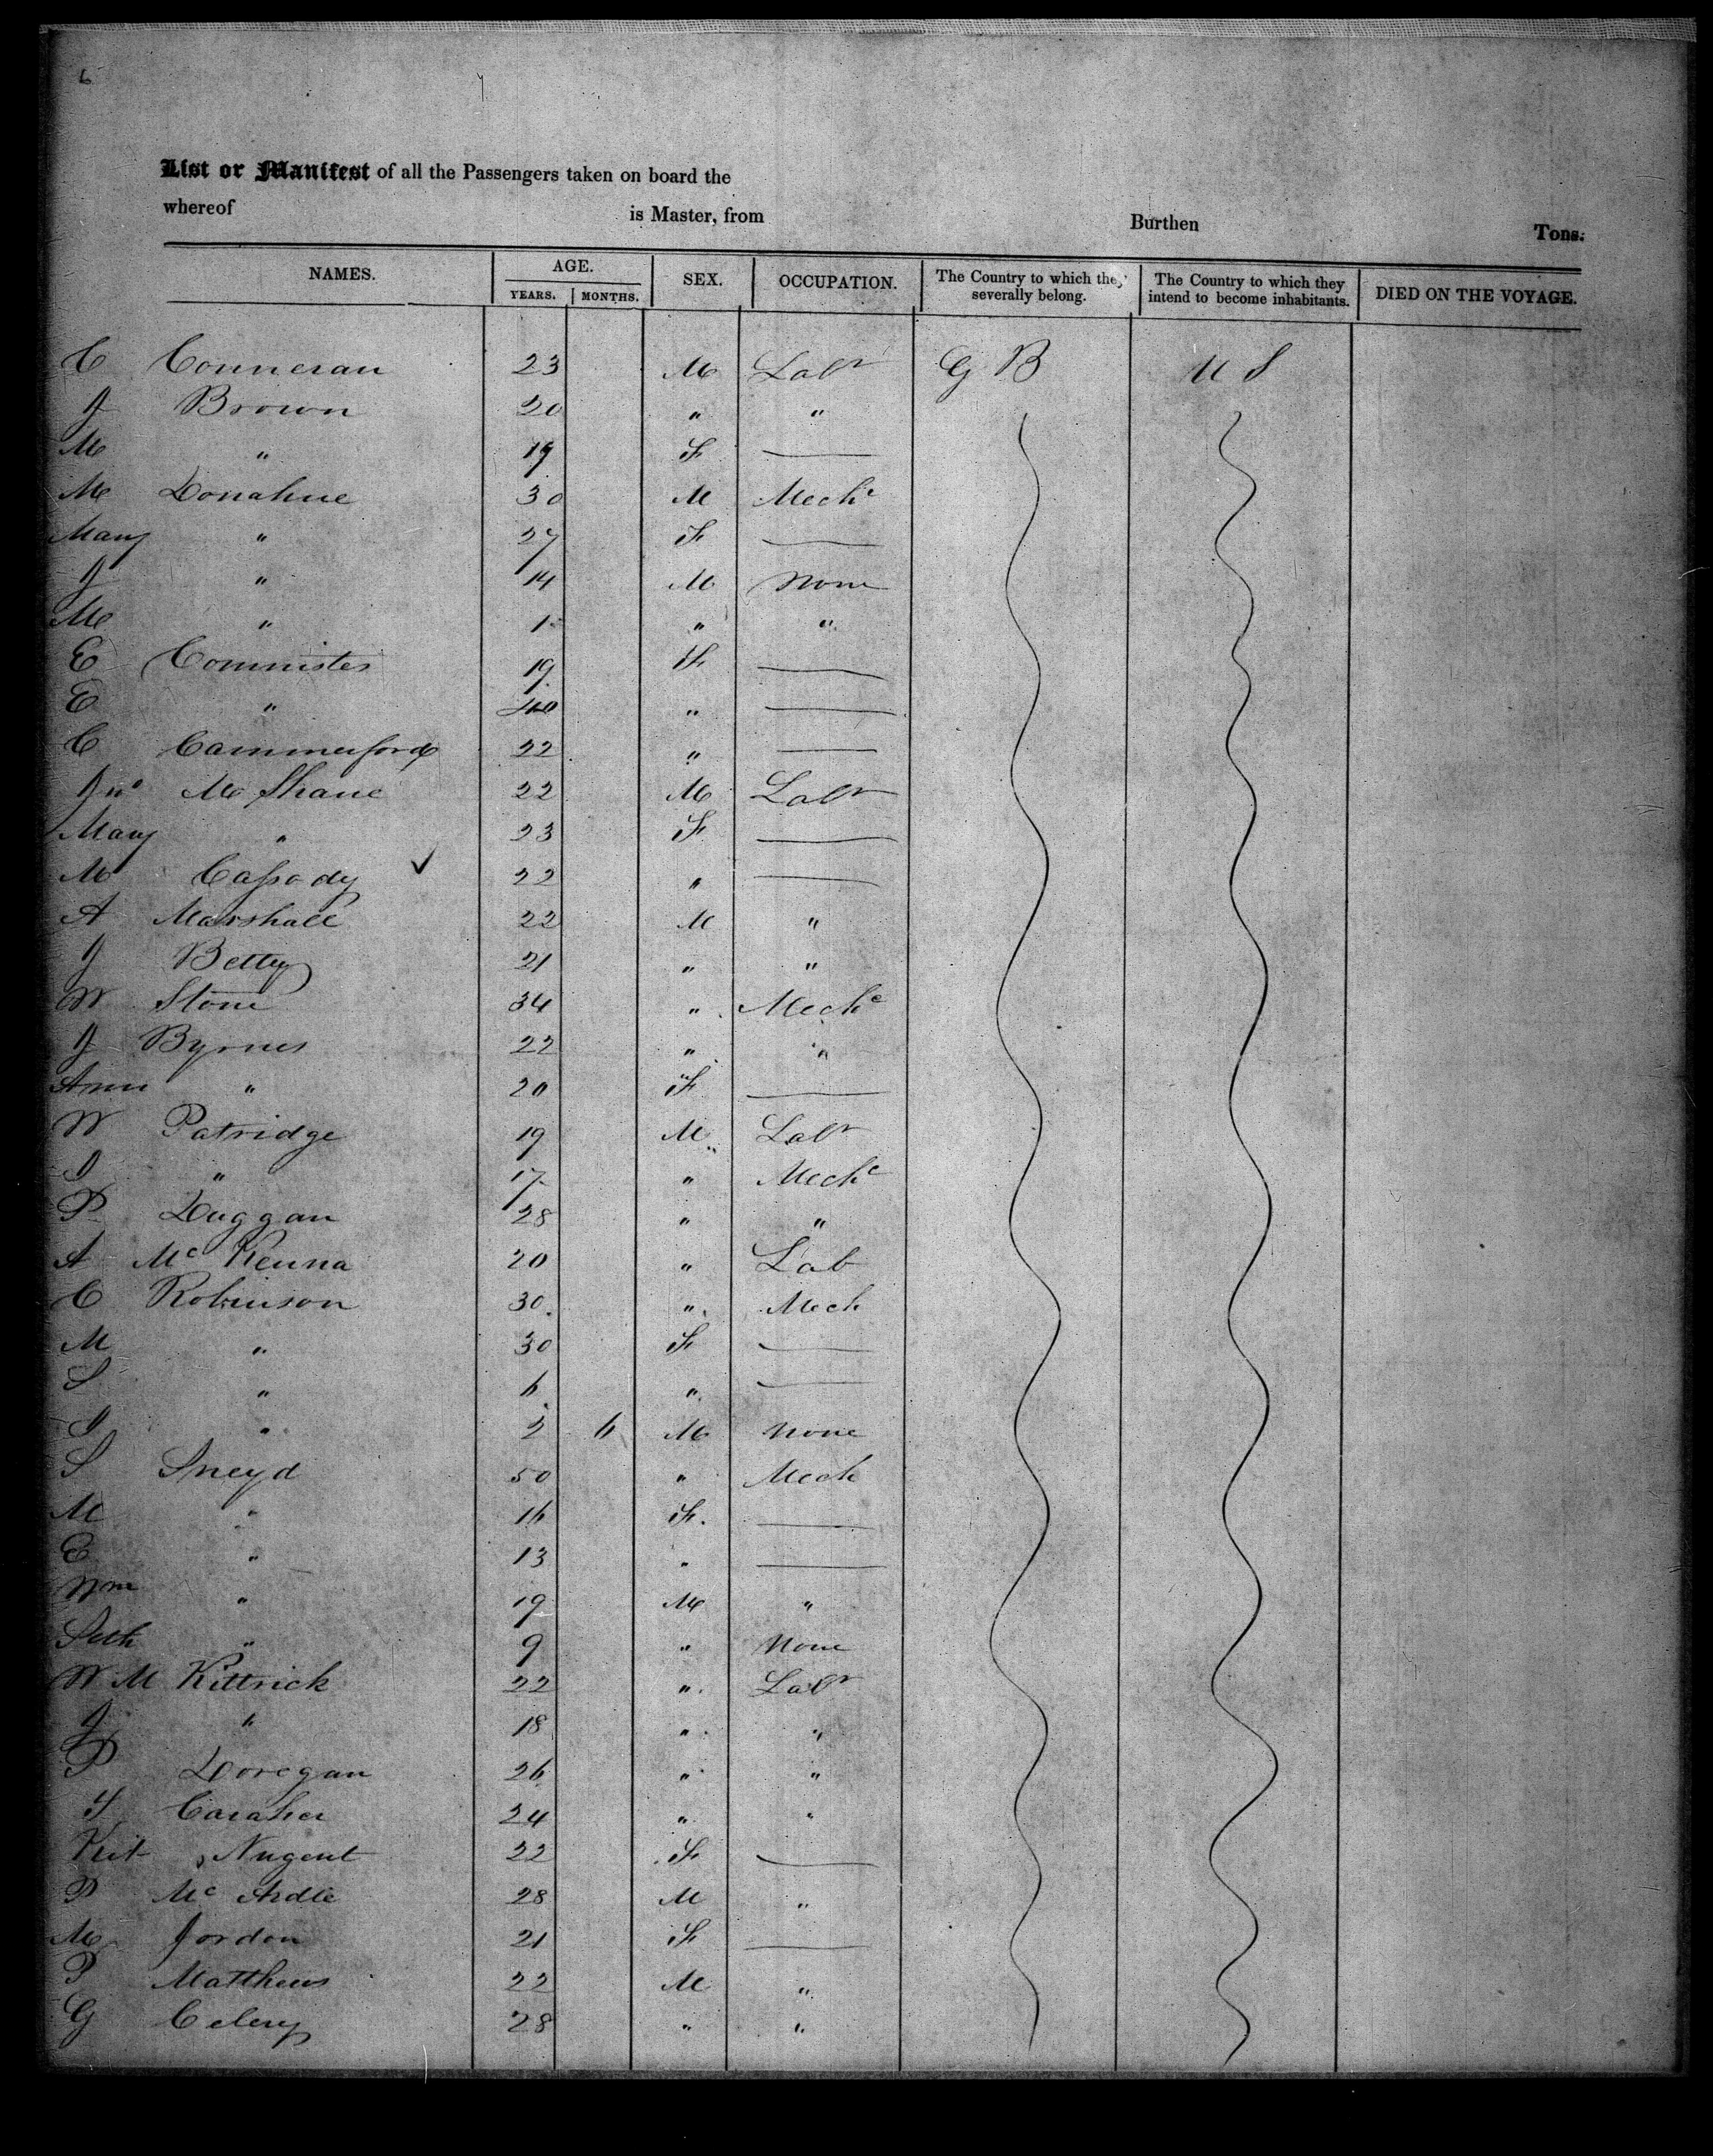 6
List or Manifest of all the Passengers taken on board the
whereof is Master, from Burthen Tons.
NAMES. AGE. YEARS. MONTHS. SEX. OCCUPATION. The Country to which they severally belong. The Country to which they intend to become inhabitants. DIED ON THE VOYAGE.
C Conneran 23 M Labr G B U S
J Brown 20 " "
M " 19 F
M Donahue 30 M Mechc
Mary " 27 F
J " 14 M None
M " 1 " "
E Comnister 19 F
E " 40 "
C Cammerford 22 "
Jno Mc Shane 22 M Labr
Mary " 23 F
M Cassody 22 "
A Marshall 22 M "
J Betty 21 " "
W Stone 34 " Mechc
J Byrnes 22 " "
Ann " 20 F
W Patridge 19 M Labr
J " 17 " Mechc
P Duggan 28 " "
A Mc Kenna 20 " Lab
C Robinson 30 " Mech
M " 30 F
S " 6 "
J " 2 6 M None
S Sneyd 50 " Mech
M " 16 F
E " 13 "
Wm " 19 M "
Seth " 9 " None
W M Kittrick 22 " Labr
J " 18 " "
P Doregan 26 " "
Caraher 24 " "
Kit Nugent 22 F
P Mc Ardle 28 M "
M Jordon 21 F
P Matthews 22 M "
G Celery 28 " "